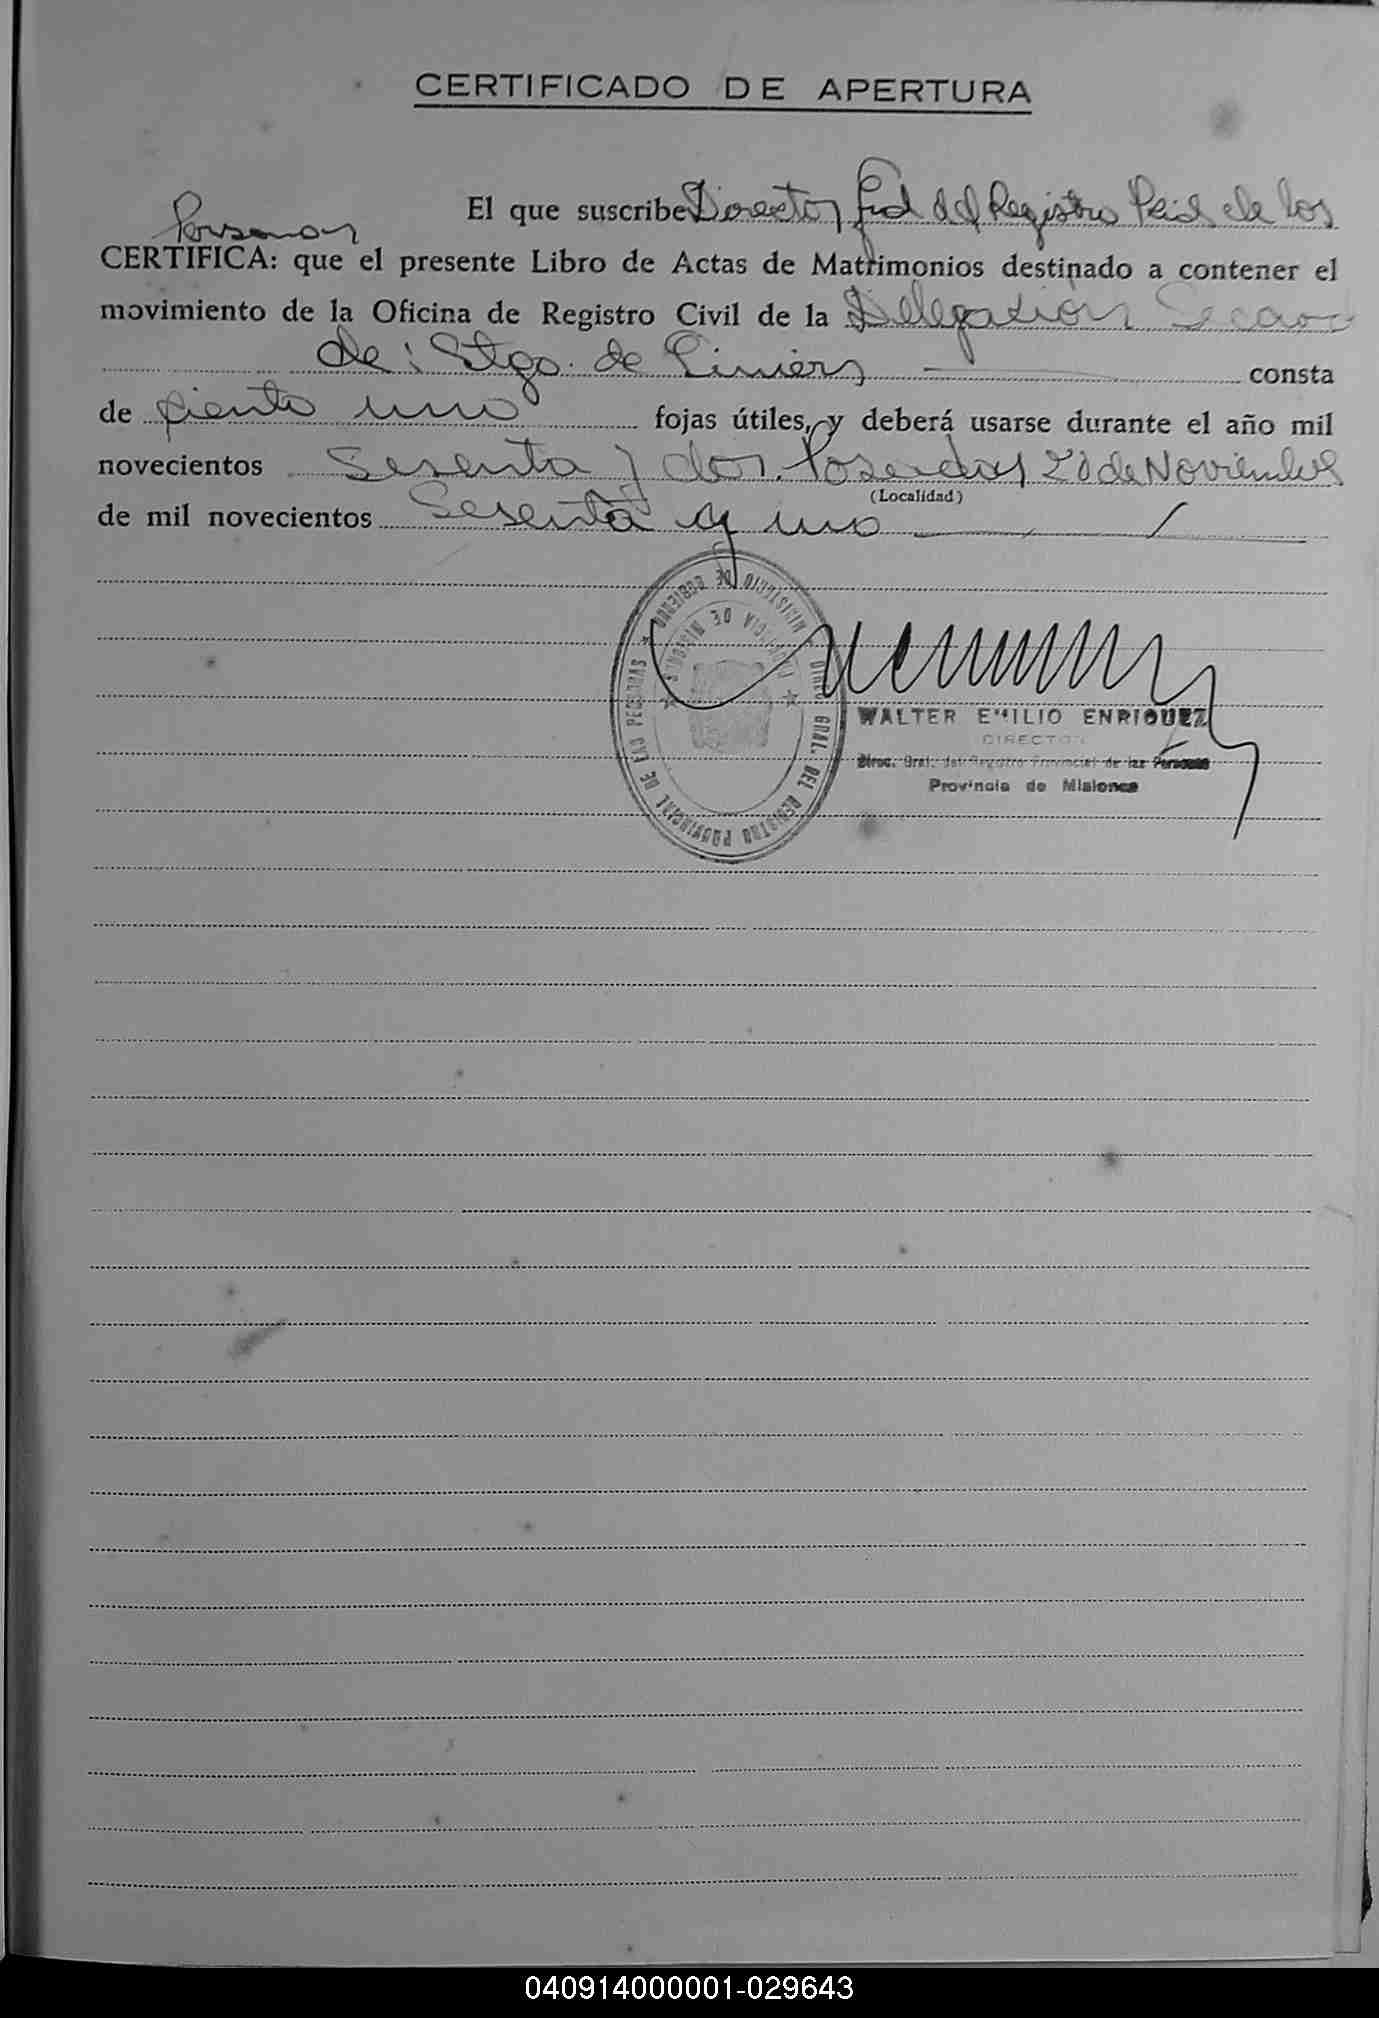 CERTIFICADO DE APERTURA
El que suscribe Director Gral del Registro Pcial de las
Personas
CERTIFICA: que el presente Libro de Actas de Matrimonios destinado a contener el
movimiento de la Oficina de Registro Civil de la Delegation
de: Stgo. de Liniers consta
de ciento uno fojas útiles, y deberá usarse durante el año mil
novecientos Sesenta y dos. Posadas, 20 de Noviembre
(Localidad)
de mil novecientos Sesenta y uno
MINISTERIO DE GOBIERNO
PROVINCIA DE MISIONES
DIREC. GRAL. DEL REGISTRO PROVINCIAL DE LAS PERSONAS
WALTER EMILIO ENRIQUEZ
DIRECTOR
Direc. Gral. del Registro Provincial de las Personas
Provincia de Misiones
040914000001-029643